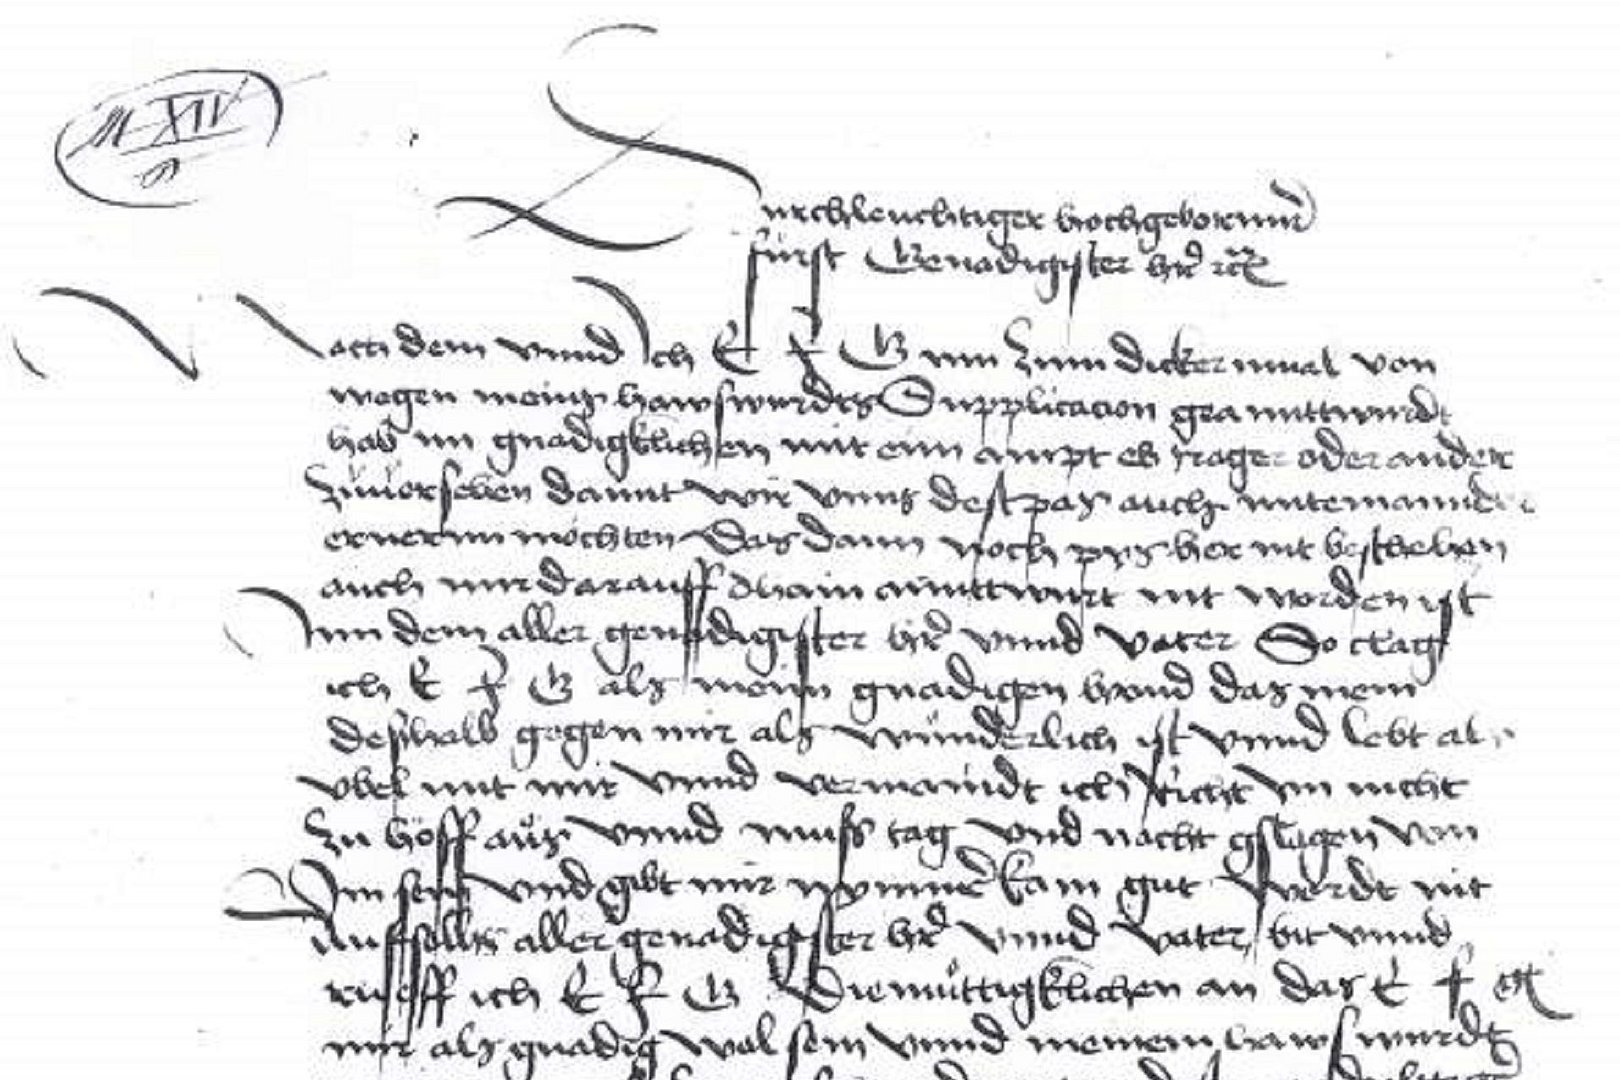 M XIV
Durchleuchtiger hochgebornner
fürst Genadigister her etc
Nach dem vnnd Ich E F G nun zum dickermmal von
wegen meins hawswirdts Supplicacion geanntwurdt
hab im gnadigklichen mit eim ampt es trager oder ander
zuuersehen damit wir vnns dest pas auch miteinannder
ernerrnn mochten Das dann noch pys her nit bescheben
auch mir darauff dhain anntwurt nit worden ist
Inn dem aller genadigister her vnnd vater So clag
ich E F G als meinn gnadigen hernd das mein
deshalb gegen mir als wunderlich ist vnnd lebt als
vbel mit mir vnnd vermaindt ich richt Im nicht
zu hoff aus vnnd muss tag vnd nacht gslagen von
Im sein vnd gibt mir nymmer kain gut werdt nit
allergenadigster her vnnd vater bit vnnd
rueff ich E F G Diemuttigklichen an das E F G
mir als gnadig wol sein vnnd meinem hawswirdt